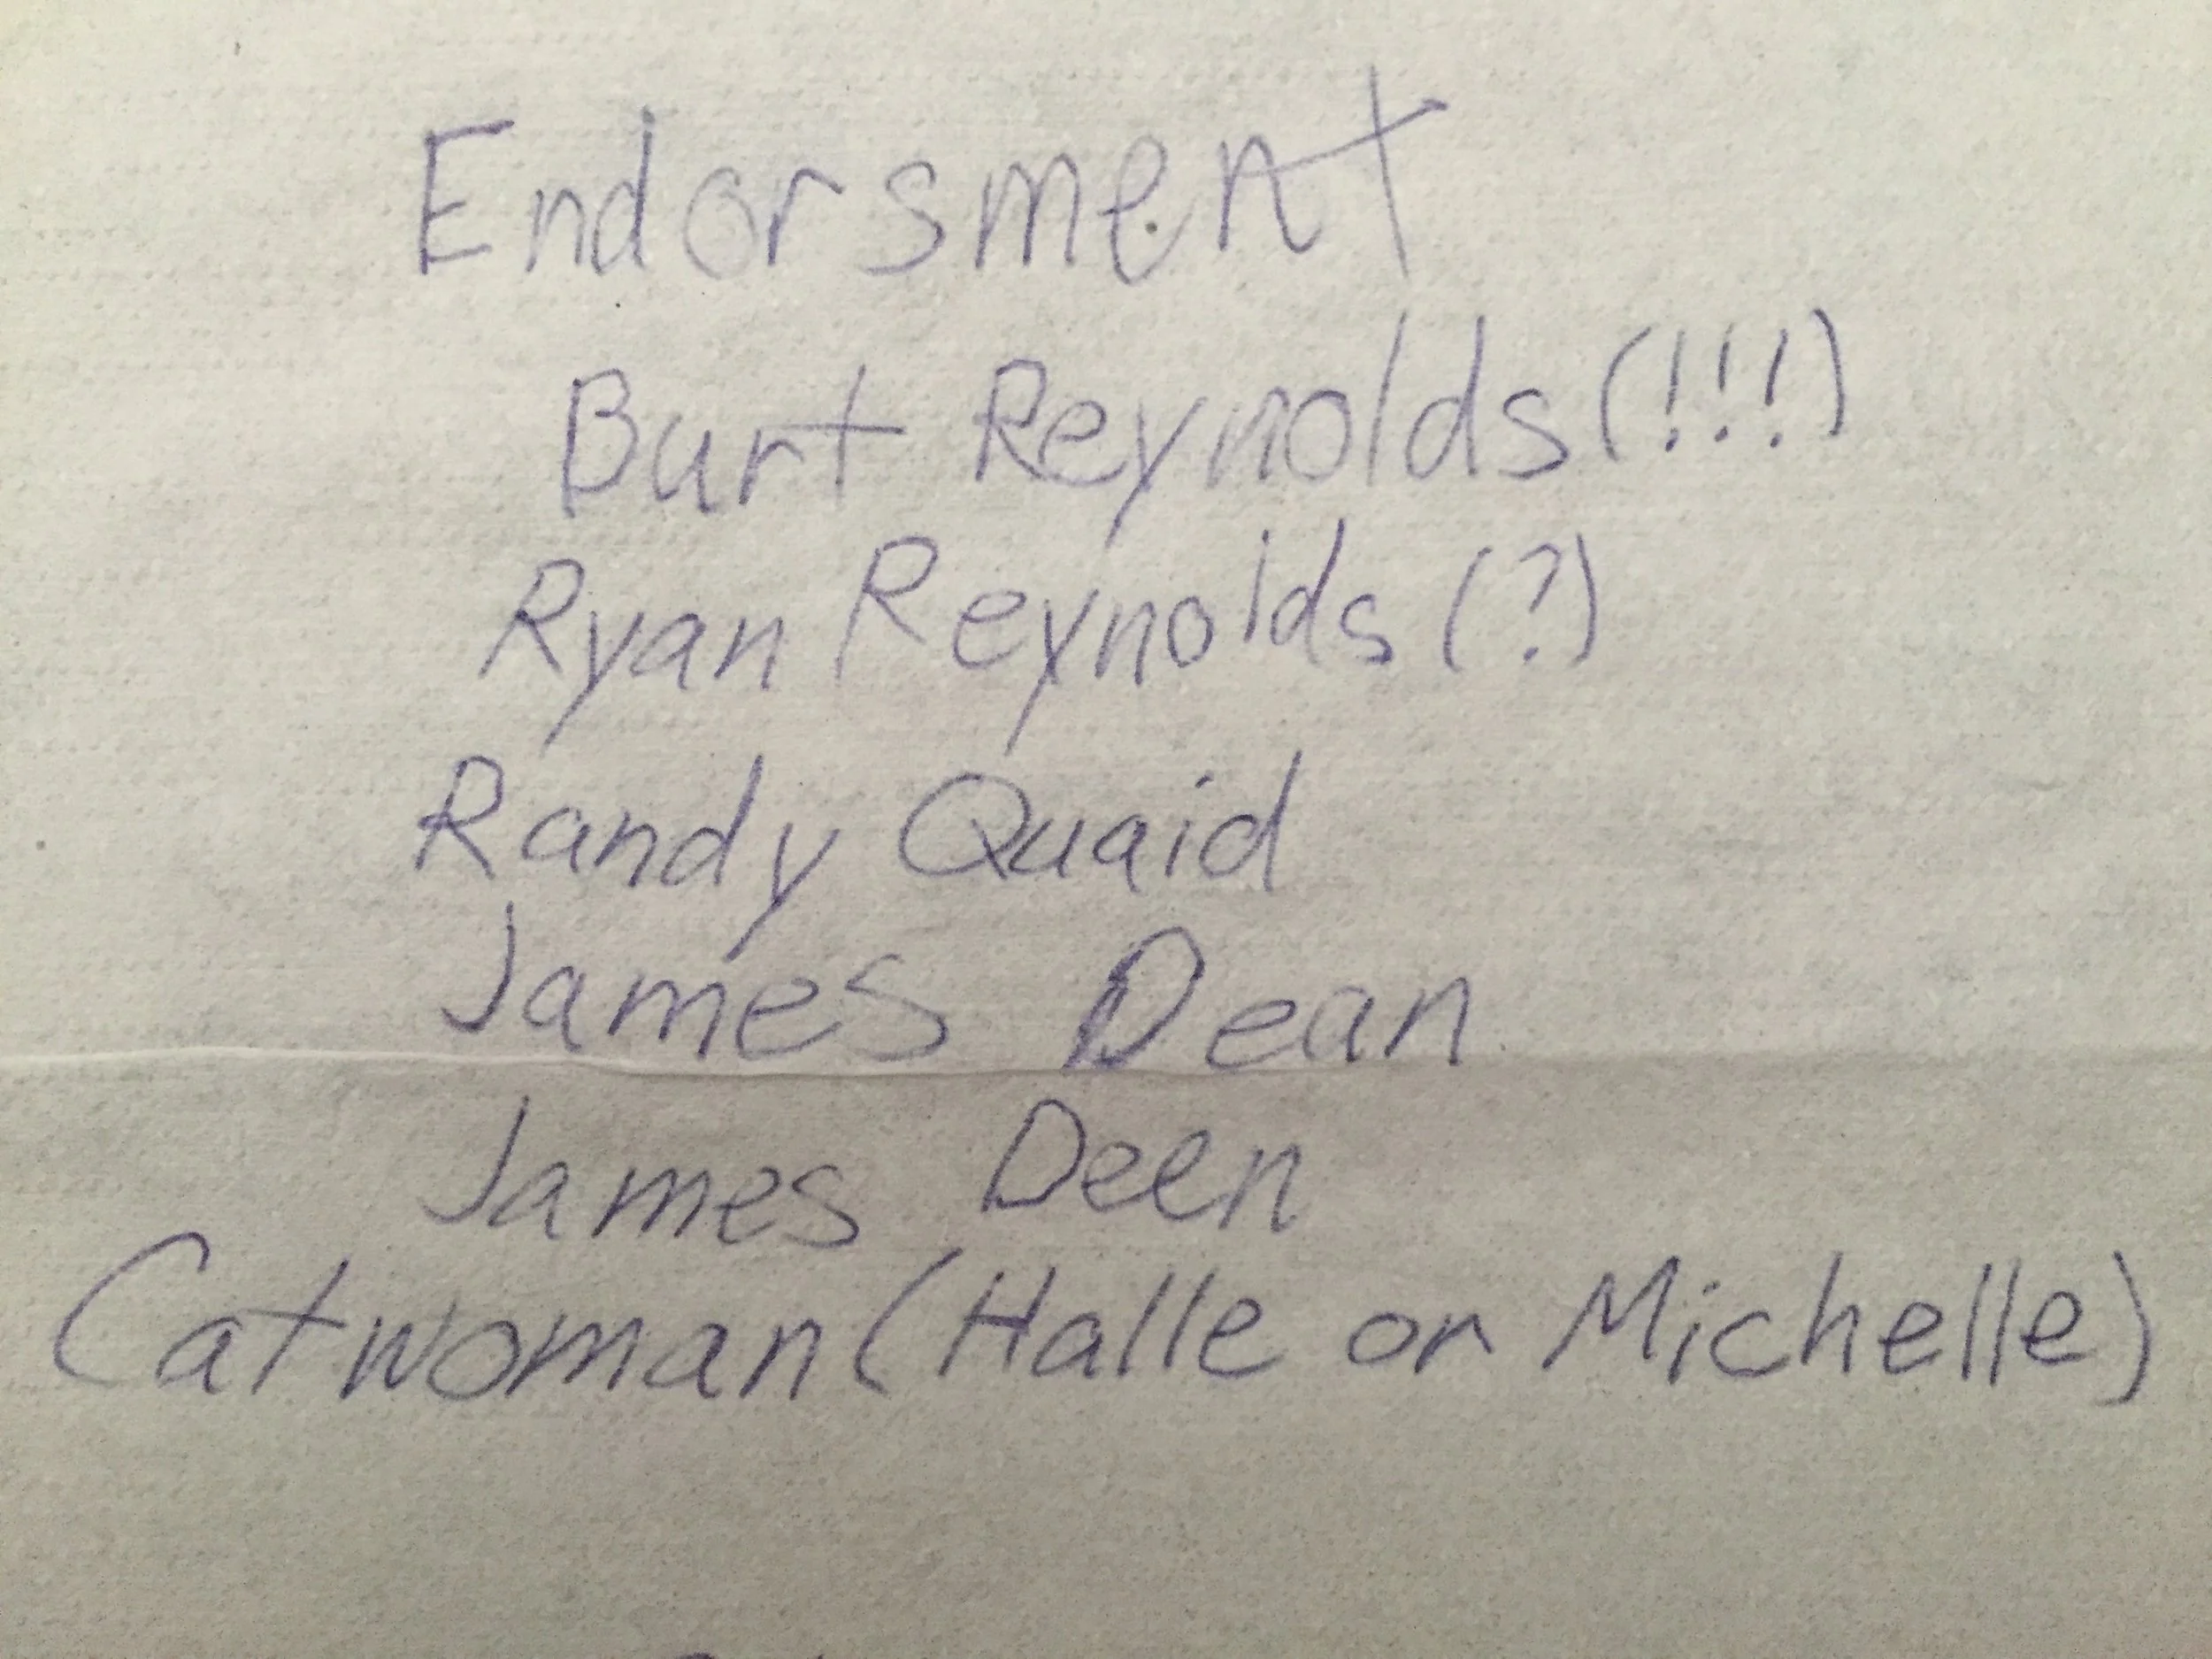 Endorsment
Burt Reynolds (!!!)
Ryan Reynolds (?)
Randy Quaid
James Dean
James Deen
Catwoman (Halle or Michelle)